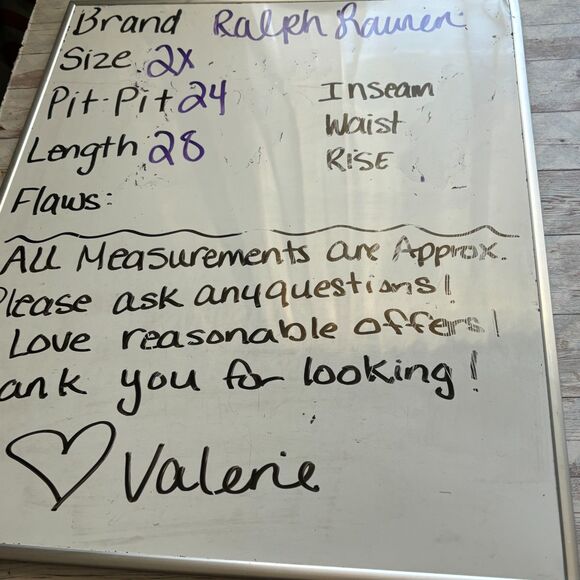 Brand Ralph Lauren
Size 2X
Pit-Pit 24
Length 28
Inseam
Waist
Rise
Flaws:
All Measurements are Approx.
Please ask any questions!
Love reasonable offers!
ank you for looking!
Valerie